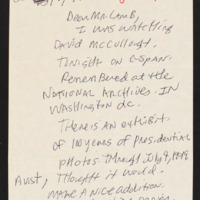 Dear Mr. Lamb,
I was watching
David McCullough.
Tonight on C-span.
Remembered at the
NATIONAL ARCHIVES. IN
Washington dc.
There is an exhibit
of 10 years of presidential
photos through July 9, 1989
AuST, I thought it would.
MAKE A NICE addition.